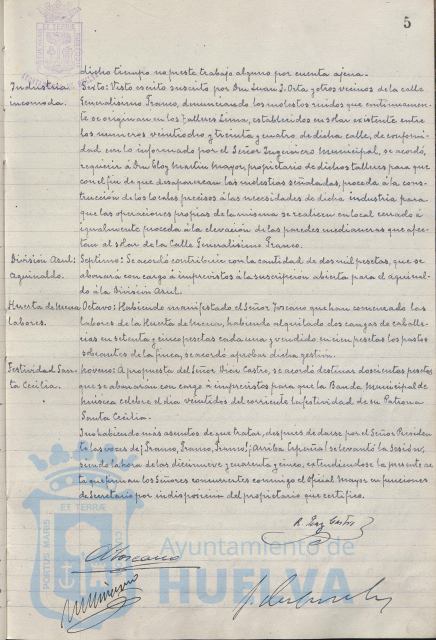 5
dicho tiempo no preste trabajo alguno por cuenta ajena.-
Industria incomoda.
Sexto: Visto escrito suscrito por Don Juan J. Orta y otros vecinos de la calle
Generalísimo Franco, denunciando los molestos ruidos que continuamen-
te se originan en los Talleres Lima, establecidos en solar existente entre
los numeros veintiocho y treinta y cuatro de dicha calle, de conformi-
dad con lo informado por el Señor Ingeniero Municipal, se acordó,
requerir á Don Eloy Martín Mayor, propietario de dichos talleres para que
con el fin de que desaparezcan las molestias señaladas, proceda á la cons-
trucción de los locales precisos á las necesidades de dicha industria para
que las operaciones propias de la misma se realicen en local cerrado é
igualmente proceda á la elevación de las paredes medianeras que afec-
tan al solar de la Calle Generalísimo Franco.
División Azul: Aguinaldo.
Septimo: Se acordó contribuir con la cantidad de dos mil pesetas, que se
abonarán con cargo á imprevistos á la suscripción abierta para el aguinal-
do á la División Azul.
Huerta de Mena Labores.
Octavo: Habiendo manifestado el Señor Toscano que han comenzado las
labores de la Huerta de Mena, habiendo alquilado dos cangas de caballe-
rias en setenta y cinco pesetas cada una y vendido en cien pesetas los pastos
sobrantes de la finca, se acordó aprobar dicha gestión.
Festividad San-
ta Cecilia.
Noveno: A propuesta del Señor Díaz Castro, se acordó destinar doscientas pesetas
que se abonarán con cargo á imprevistos para que la Banda Municipal de
música celebre el día veintidos del corriente la festividad de su Patrona
Santa Cecilia.
Y no habiendo más asuntos de que tratar, despues de darse por el Señor Presiden-
te las voces de ¡Franco, Franco, Franco! ¡Arriba España! se levantó la Sesión,
siendo la hora de las diecinueve y cuarenta y cinco, extendiendose la presente ac-
ta que firman los Señores concurrentes conmigo el Oficial Mayor en funciones
de Secretario por indisposición del propietario que certifico.
Ayuntamiento de
HUELVA
PORTUS MARIS
ET TERRÆ